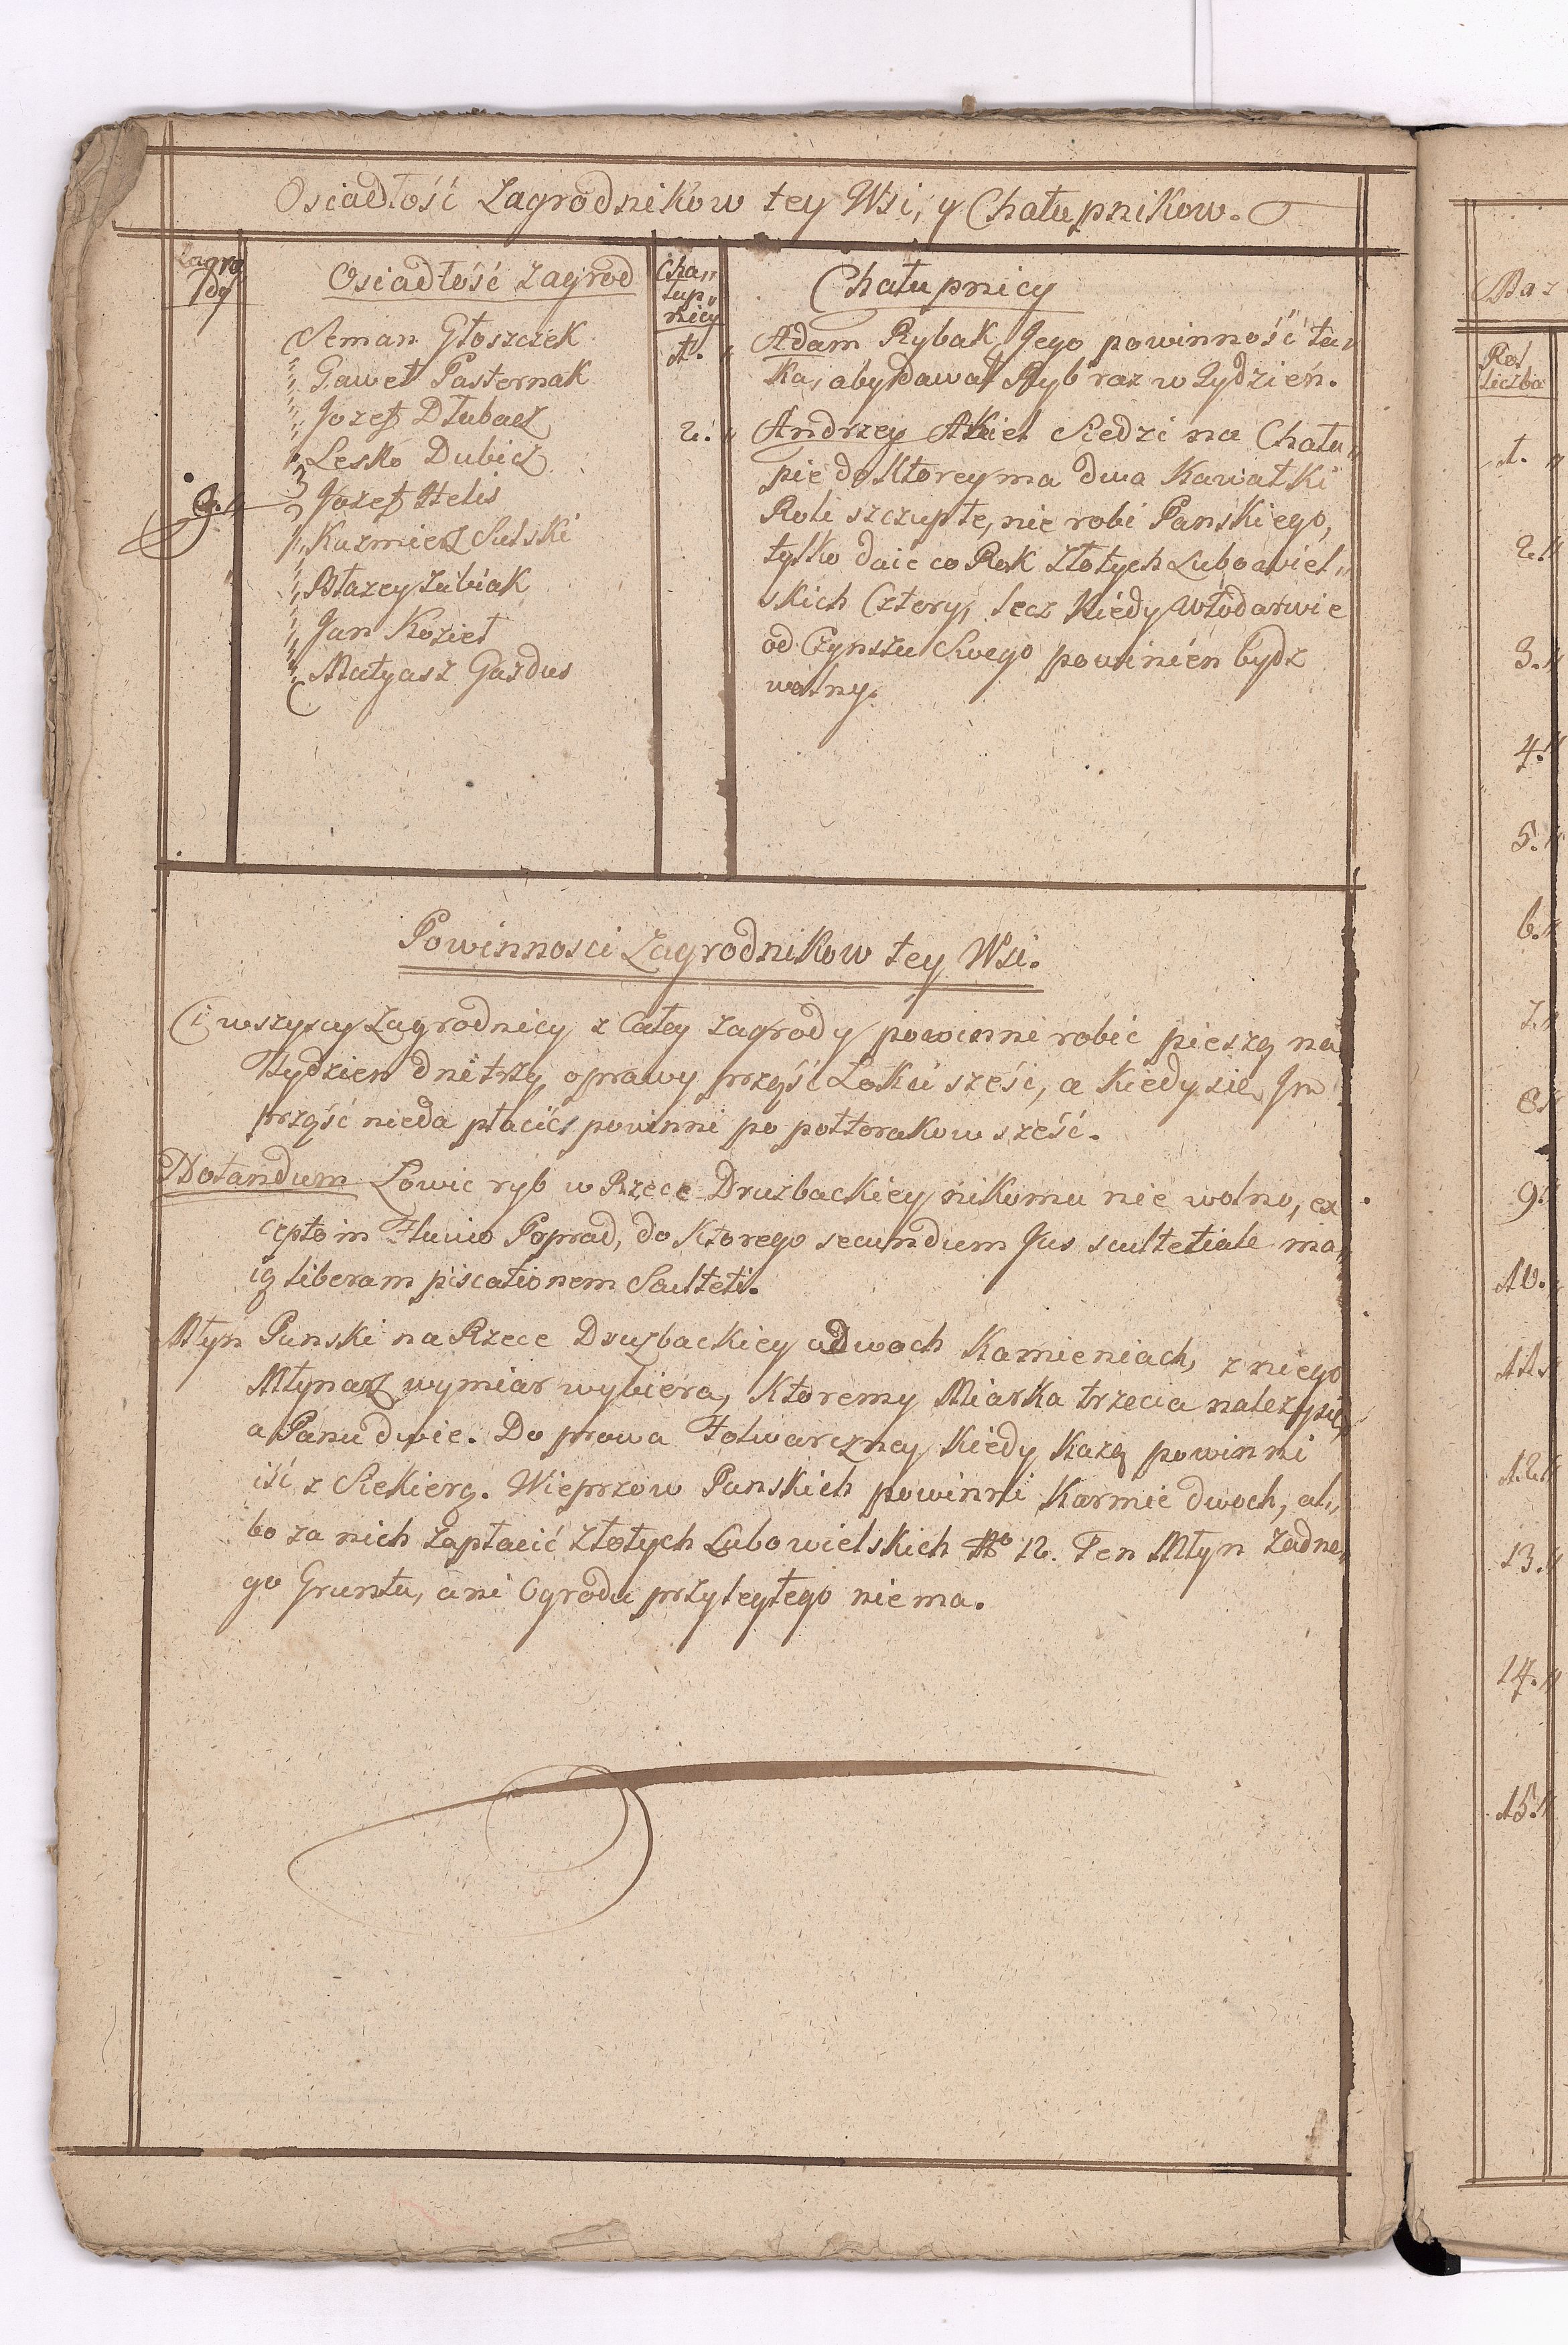 Osiadłość Zagrodnikow tey Wsi, y Chałupnikow.
Zagro
dy
Osiadłość Zagrod
Seman Głoszczek
Gaweł Pasternak
Jozef Dłubacz
Lesko Dubicz
9.
Jozef Helis
Kazmierz Sulski
Błazey Zubiak
Jan Kozieł
Matyasz Gazdus
Cha„
łup„
nicy
Chałupnicy
1. „ Adam Rybak, Jego powinność ta„
ka, aby dawał Ryb raz w Tydzień.
2. „ Andrzey siedzi na Chału„
pie do Ktorey ma dwa Kawałki
Roli szczupłe, nie robi Panskiego,
tylko daie co Rok Złotych Lubowiel„
skich Cztery, lecz Kiedy Włodarwie
od Czynszu Swego powinién bydz
wolny.
Powinnosci Zagrodnikow tey Wsi.
Ci wszyscy Zagrodnicy z Całey Zagrody powinni robić pieszą na
Tydzien dni trzy, oprawy prząść Lokci sześć, a Kiedy sie Jm
prząść nieda płacić powinni po połtorakow sześć.
Notandum Lowic ryb w Rzece Druzbackiey nikomu nie wolno, ex
cepto in Fluvio Poprad, do Ktorego secundum Jus scultetiale ma„
ią liberam piscationem Sculteti.
Młyn Panski na Rzece Druzbackiey o Dwoch Kamieniach, z niego
Młynarz wymiar wybiera, Ktoremy Miarka trzecia nalezy sie,
a Panu dwie. Do prowa Folwarczney Kiedy Kazą powinni
iść z Siekierą. Wieprzow Panskich powinni Karmic dwoch, al„
bo za nich Zapłacić Złotych Lubowielskich No 12. Ten Młyn Zadne„
go Gruntu, ani Ogrodu przyległego nie ma.
Rol
liczba
1. „
2. „
3. „
4. „
5. „
6. „
7. „
8. „
9. „
10. „
11. „
12. „
13. „
14. „
15. „